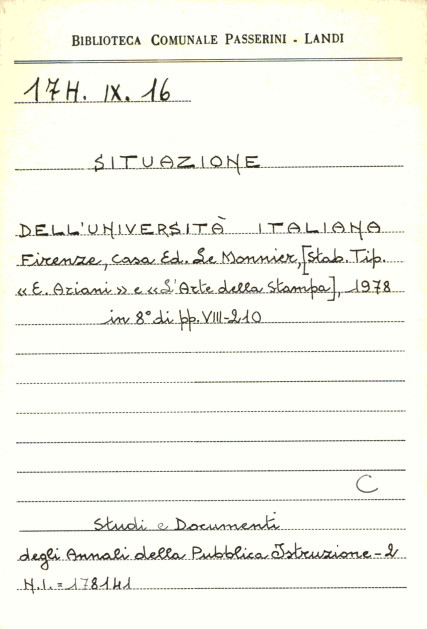 BIBLIOTECA COMUNALE PASSERINI - LANDI
17H. IX. 16
SITUAZIONE
DELL'UNIVERSITÀ ITALIANA
Firenze, Casa Ed. Le Monnier, [Stab. Tip.
«E. Ariani» e «L'Arte della Stampa], 1978
in 8° di pp. VIII-210
C
Studi e Documenti
degli Annali della Pubblica Istruzione - 2
N.I. = 178141